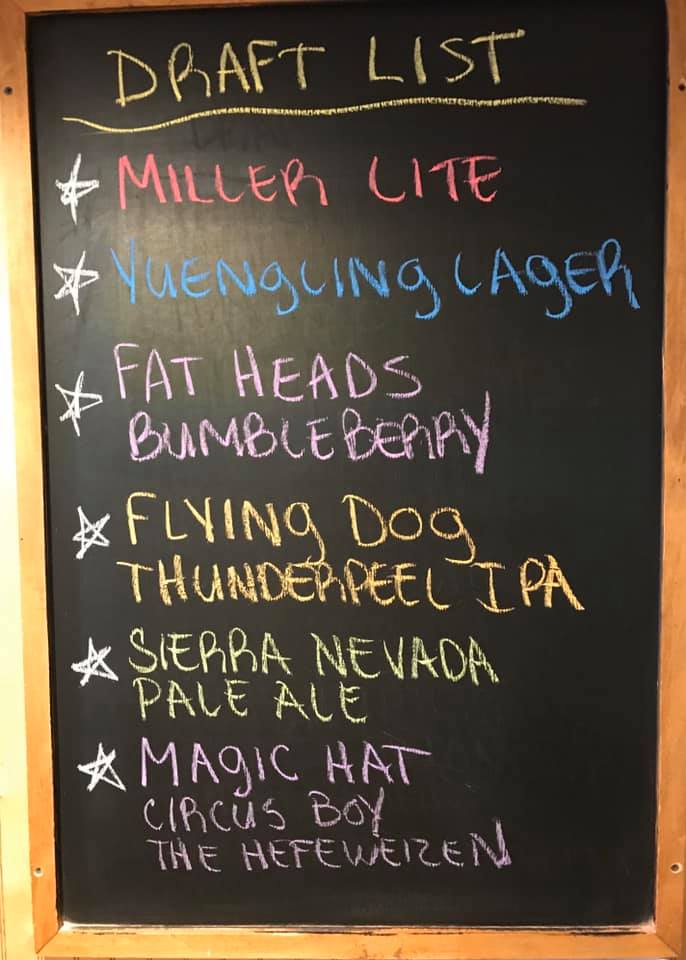 DRAFT LIST
MILLER LITE
YUENGLING LAGER
FAT HEADS
BUMBLEBERRY
FLYING DOG
THUNDERPEEL IPA
SIERRA NEVADA
PALE ALE
MAGIC HAT
CIRCUS BOY
THE HEFEWEIZEN